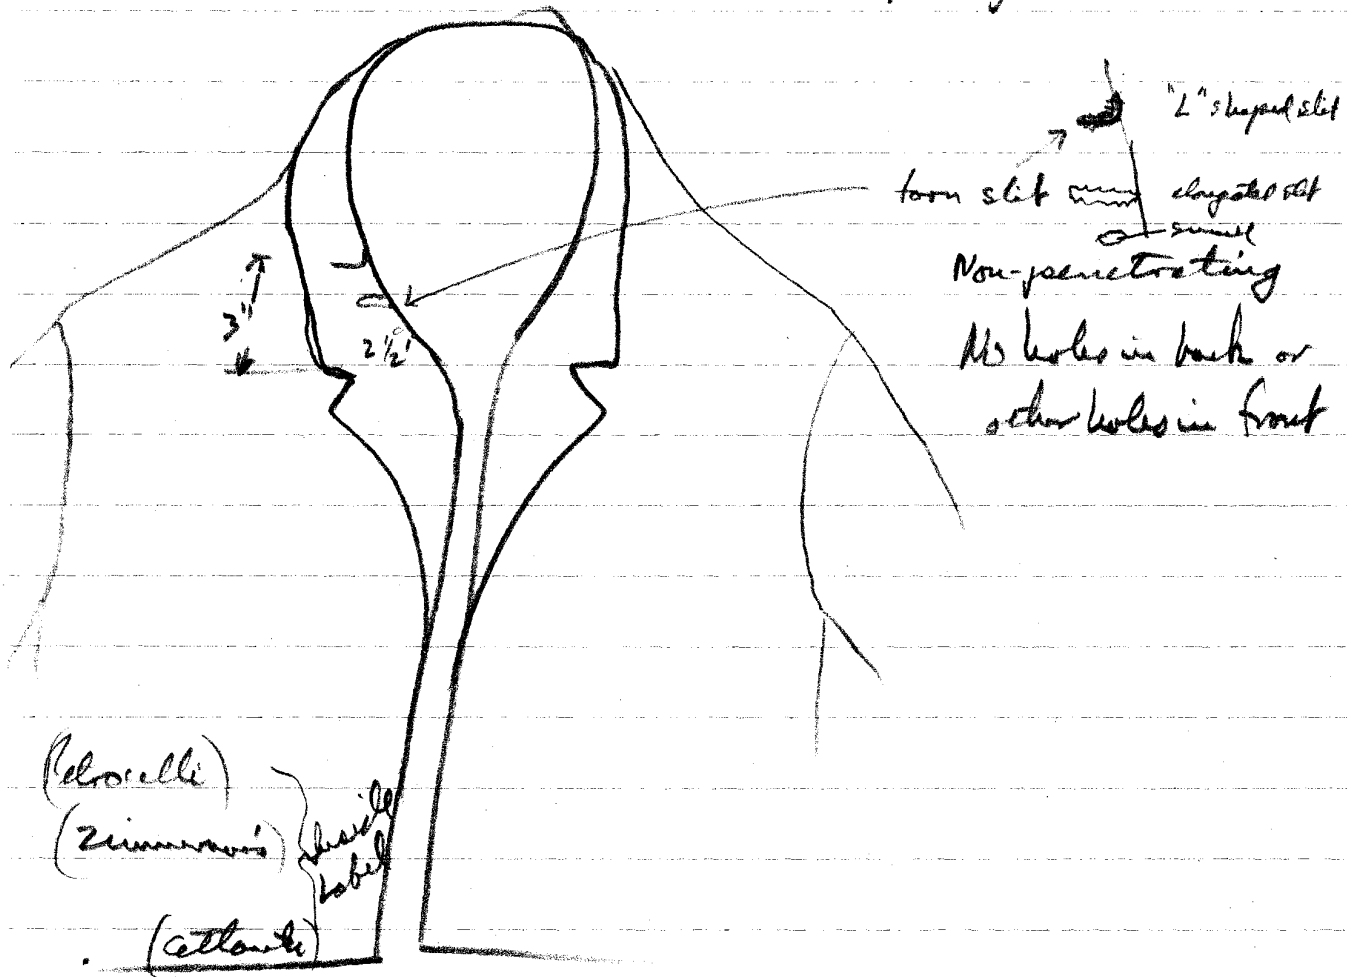 "L" shaped slit
torn slit
elongated slit
small
Non-penetrating
No holes in back or
other holes in front
3"
2 1/2"
(Petrocelli)
(Zimmerman's)
Inside
Label
(Atlanta)